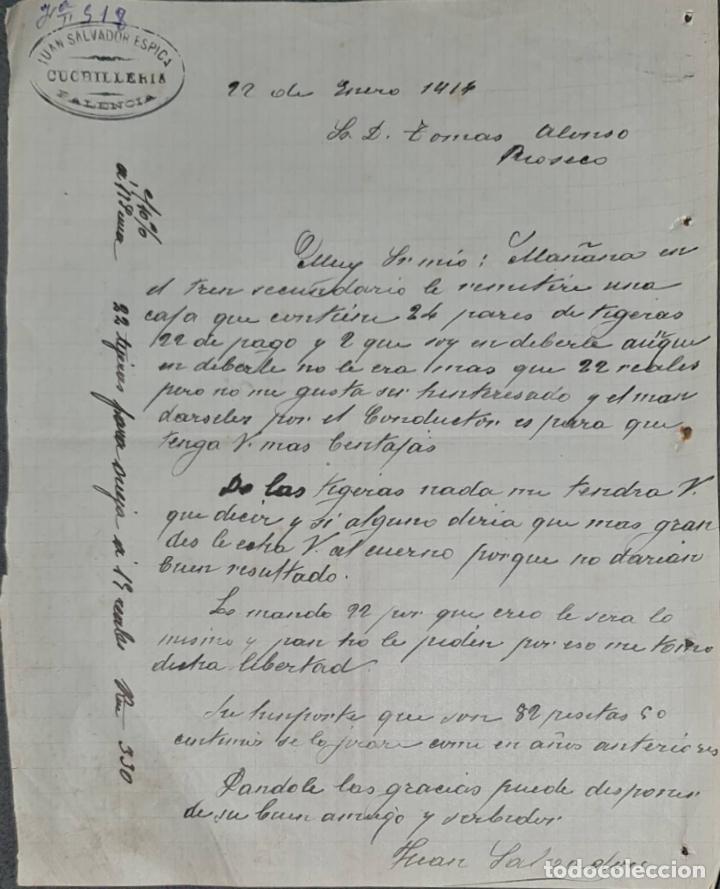 JUAN SALVADOR ESPIGA
CUCHILLERIA
PALENCIA
22 de Enero 1914
Sr. D. Tomas Alonso
Rioseco
Muy Sr mio: Mañana en
el tren secundario le remitire una
caja que contiene 24 pares de tigeras
22 de pago y 2 que soy en deberle auñque
en deberle no le era mas que 22 reales
pero no me gusta ser hinteresado y el man
darselos por el Conductor es para que
tenga V. mas Bentajas
De las tigeras nada me tendra V.
que decir y si alguno diria que mas gran
des le echa V. al cuerno porque no darian
buen resultado.
Le mando 22 por que creo le sera lo
mismo y pan no le piden por eso me tomo
dicha libertad.
Su himporte que son 82 pesetas 50
centimos se lo jirare como en años anteriores
Dandole las gracias puede disponer
de su buen amigo y serbidor
Juan Salvador
22 tigeras para oveja a 15 reales Rn 330
todocoleccion